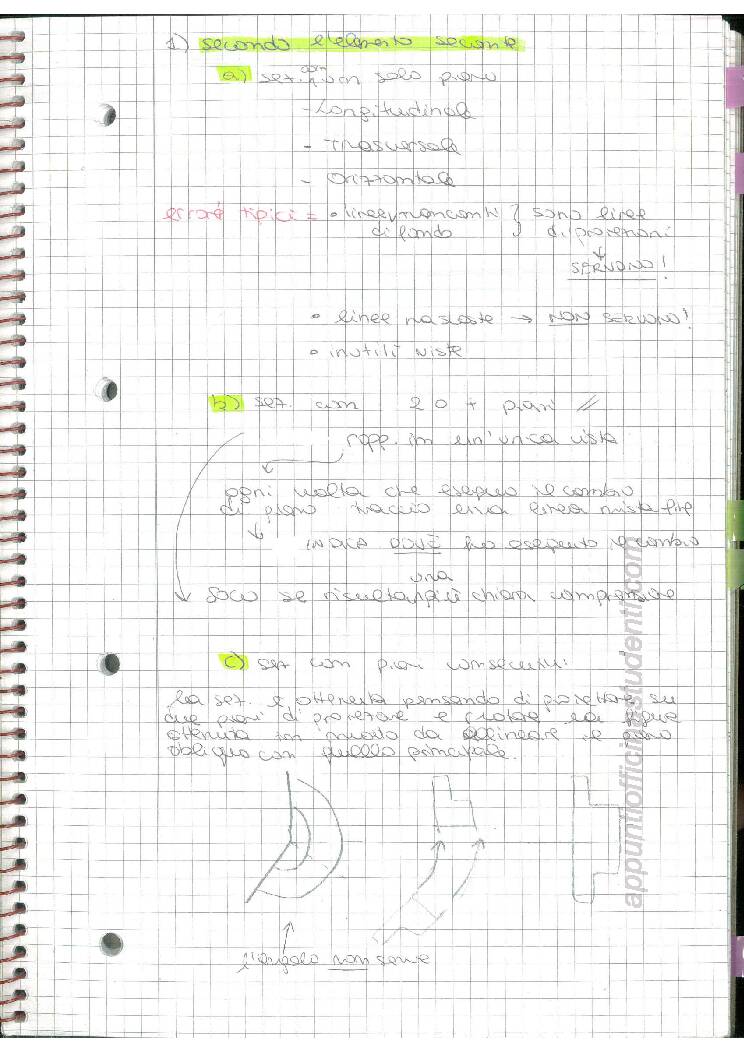 1) secondo l'elemento secante
a) sez. con un solo piano
- Longitudinale
- Trasversale
- Orizzontale
errori tipici = • linee mancanti } sono linee
di fondo } di proiezioni
↓
SERVONO!
• linee nascoste → NON SERVONO!
• inutili viste
b) sez. con 2 o + piani //
rapp. in un'unica vista
ogni volta che eseguo il cambio
di piano traccio una linea mista fine
↓ INDICA DOVE ho eseguito il cambio
una
SOLO se risulta più chiara comprensione
c) sez con piani consecutivi:
La sez. è ottenuta pensando di proiettare su
due piani di proiezione e ruotare la figura
ottenuta in modo da allineare il piano
obliquo con quello principale.
l'angolo non serve
appuntiofficinastudenti.com